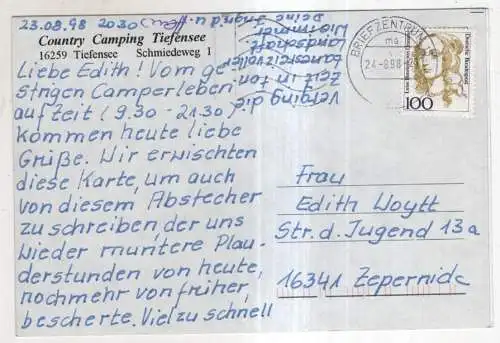 23.08.98 2030
Country Camping Tiefensee
16259 Tiefensee Schmiedeweg 1
Liebe Edith! Vom ge-
strigen Camperleben
auf Zeit (9.30 - 21.30)
kommen heute liebe
Grüße. Wir erwischten
diese Karte, um auch
von diesem Abstecher
zu schreiben der uns
wieder muntere Plau-
derstunden von heute,
nochmehr von früher,
bescherte. Viel zu schnell
verging die
Zeit in
reizvoller
Landschaft.
Deine Ingrid u.
BRIEFZENTRUM
24.-8.98
Deutsche Bundespost
100
Frau
Edith Woytt
Str. d. Jugend 13a
16341 Zepernick